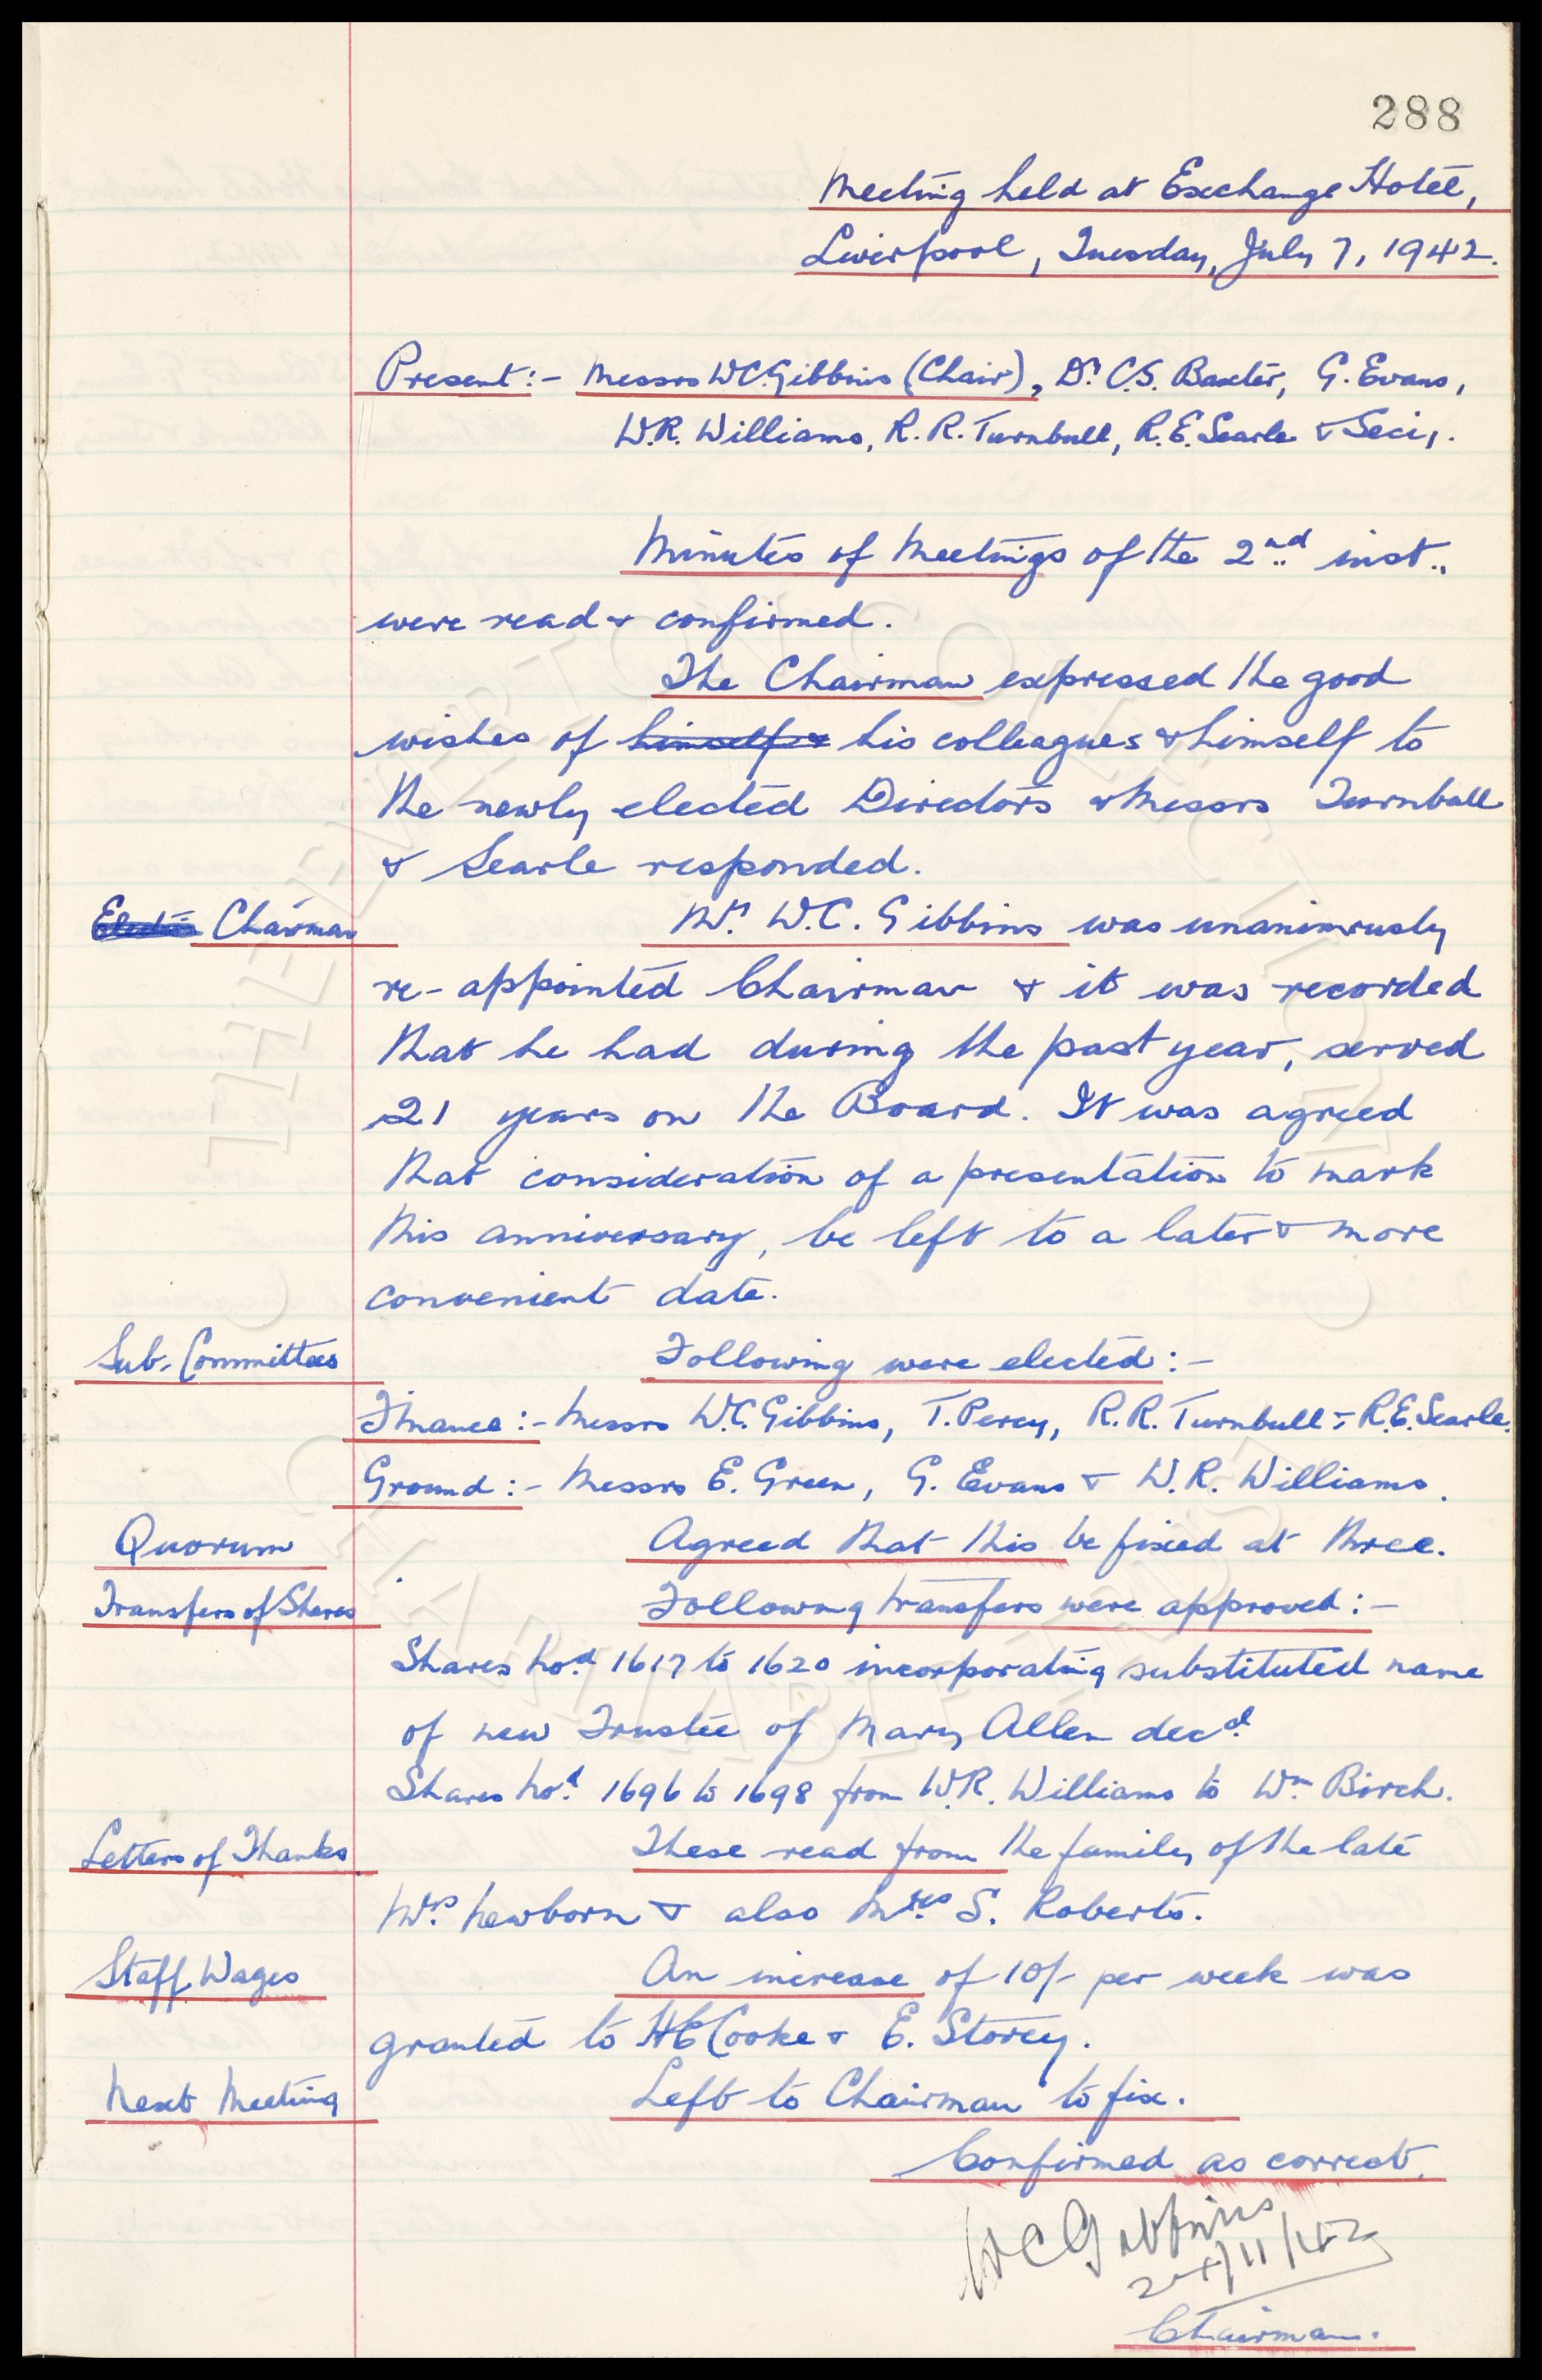 288
Meeting held at Exchange Hotel,
Liverpool, Tuesday, July 7, 1942.
Present:- Messrs W.C. Gibbins (Chair), Dr. C.S. Baxter, G. Evans,
W.R. Williams, R.R. Turnbull, R.E. Searle & Secy.
Minutes of Meetings of the 2nd inst.,
were read & confirmed.
The Chairman expressed the good
wishes of himself & his colleagues & himself to
the newly elected Directors & Messrs Turnbull
& Searle responded.
Election Chairman Mr. W.C. Gibbins was unanimously
re-appointed Chairman & it was recorded
that he had during the past year, served
21 years on the Board. It was agreed
that consideration of a presentation to mark
this anniversary, be left to a later & more
convenient date.
Sub. Committees Following were elected:-
Finance:- Messrs W.C. Gibbins, T. Percy, R.R. Turnbull & R.E. Searle.
Ground:- Messrs E. Green, G. Evans & W.R. Williams.
Quorum Agreed that this be fixed at three.
Transfers of Shares Following transfers were approved:-
Shares No.d 1617 to 1620 incorporating substituted name
of new Trustee of Mary Allen decd.
Shares No.d 1696 to 1698 from W.R. Williams to Wm Birch.
Letters of Thanks These read from the family of the late
Newborn & also Mrs. S. Roberts.
Staff Wages An increase of 10/- per week was
granted to H E Cooke & E. Storey.
Next Meeting Left to Chairman to fix.
Confirmed as correct.
WC Gibbins
Chairman.
THE EVERTON COLLECTION
CHARITABLE TRUST